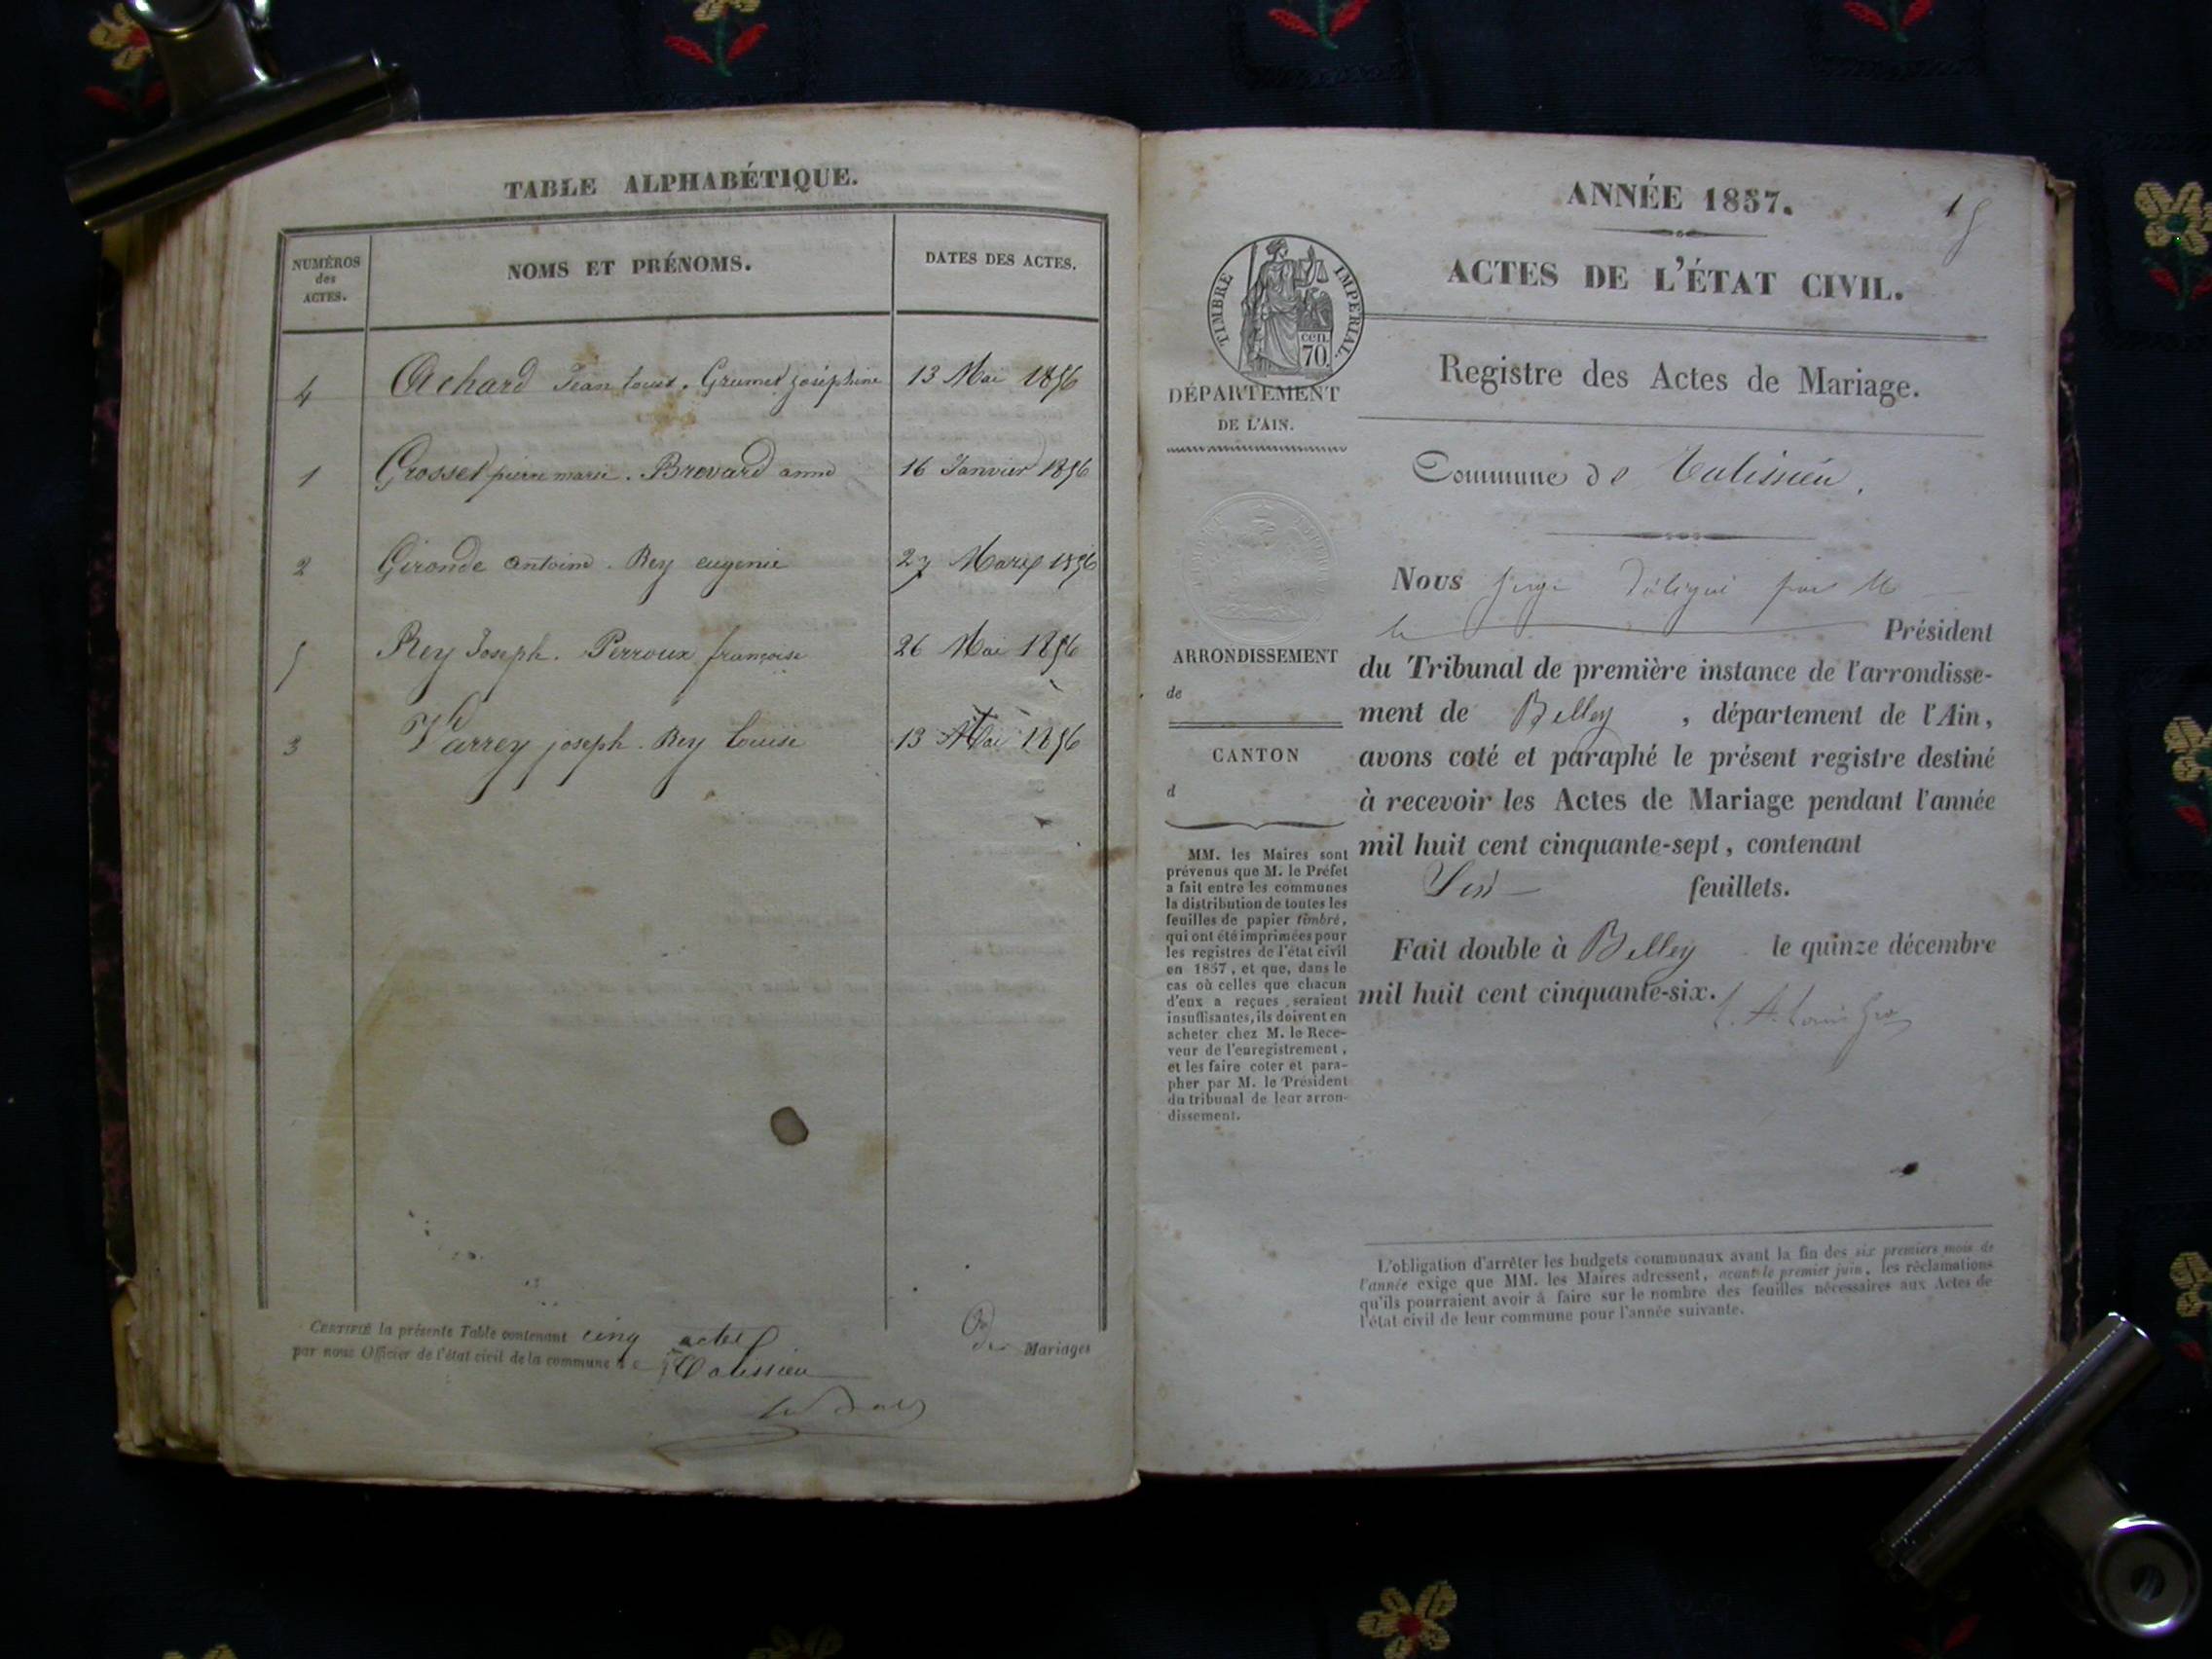 TABLE ALPHABÉTIQUE.
NUMÉROS
des
ACTES.
NOMS ET PRÉNOMS.
DATES DES ACTES.
4 Achard Jean Louis. Grumet joséphine 13 Mai 1856
1 Grosset pierre marie. Brovard anne 16 Janvier 1856
2 Gironde antoine. Rey eugenie 27 Mars 1856
5 Rey Joseph. Perroux françoise 26 Mai 1856
3 Varrey joseph. Rey Louise 13 Mai 1856
CERTIFIÉ la présente Table contenant cinq actes de Mariages
par nous Officier de l'état civil de la commune de Talissieu
ANNÉE 1857.
ACTES DE L'ÉTAT CIVIL.
TIMBRE IMPÉRIAL.
cen.
70.
DÉPARTEMENT
DE L'AIN.
Registre des Actes de Mariage.
Commune de Talissieu.
ARRONDISSEMENT
de
CANTON
d
MM. les Maires sont
prévenus que M. le Préfet
a fait entre les communes
la distribution de toutes les
feuilles de papier timbré,
qui ont été imprimées pour
les registres de l'état civil
en 1857, et que, dans le
cas où celles que chacun
d'eux a reçues seraient
insuffisantes, ils doivent en
acheter chez M. le Rece-
veur de l'enregistrement,
et les faire coter et para-
pher par M. le Président
du tribunal de leur arron-
dissement.
Nous juge délégué par M
le Président
du Tribunal de première instance de l'arrondisse-
ment de Belley, département de l'Ain,
avons coté et paraphé le présent registre destiné
à recevoir les Actes de Mariage pendant l'année
mil huit cent cinquante-sept, contenant
feuillets.
Fait double à Belley le quinze décembre
mil huit cent cinquante-six.
L'obligation d'arrêter les budgets communaux avant la fin des six premiers mois de
l'année exige que MM. les Maires adressent, avant le premier juin, les réclamations
qu'ils pourraient avoir à faire sur le nombre des feuilles nécessaires aux Actes de
l'état civil de leur commune pour l'année suivante.